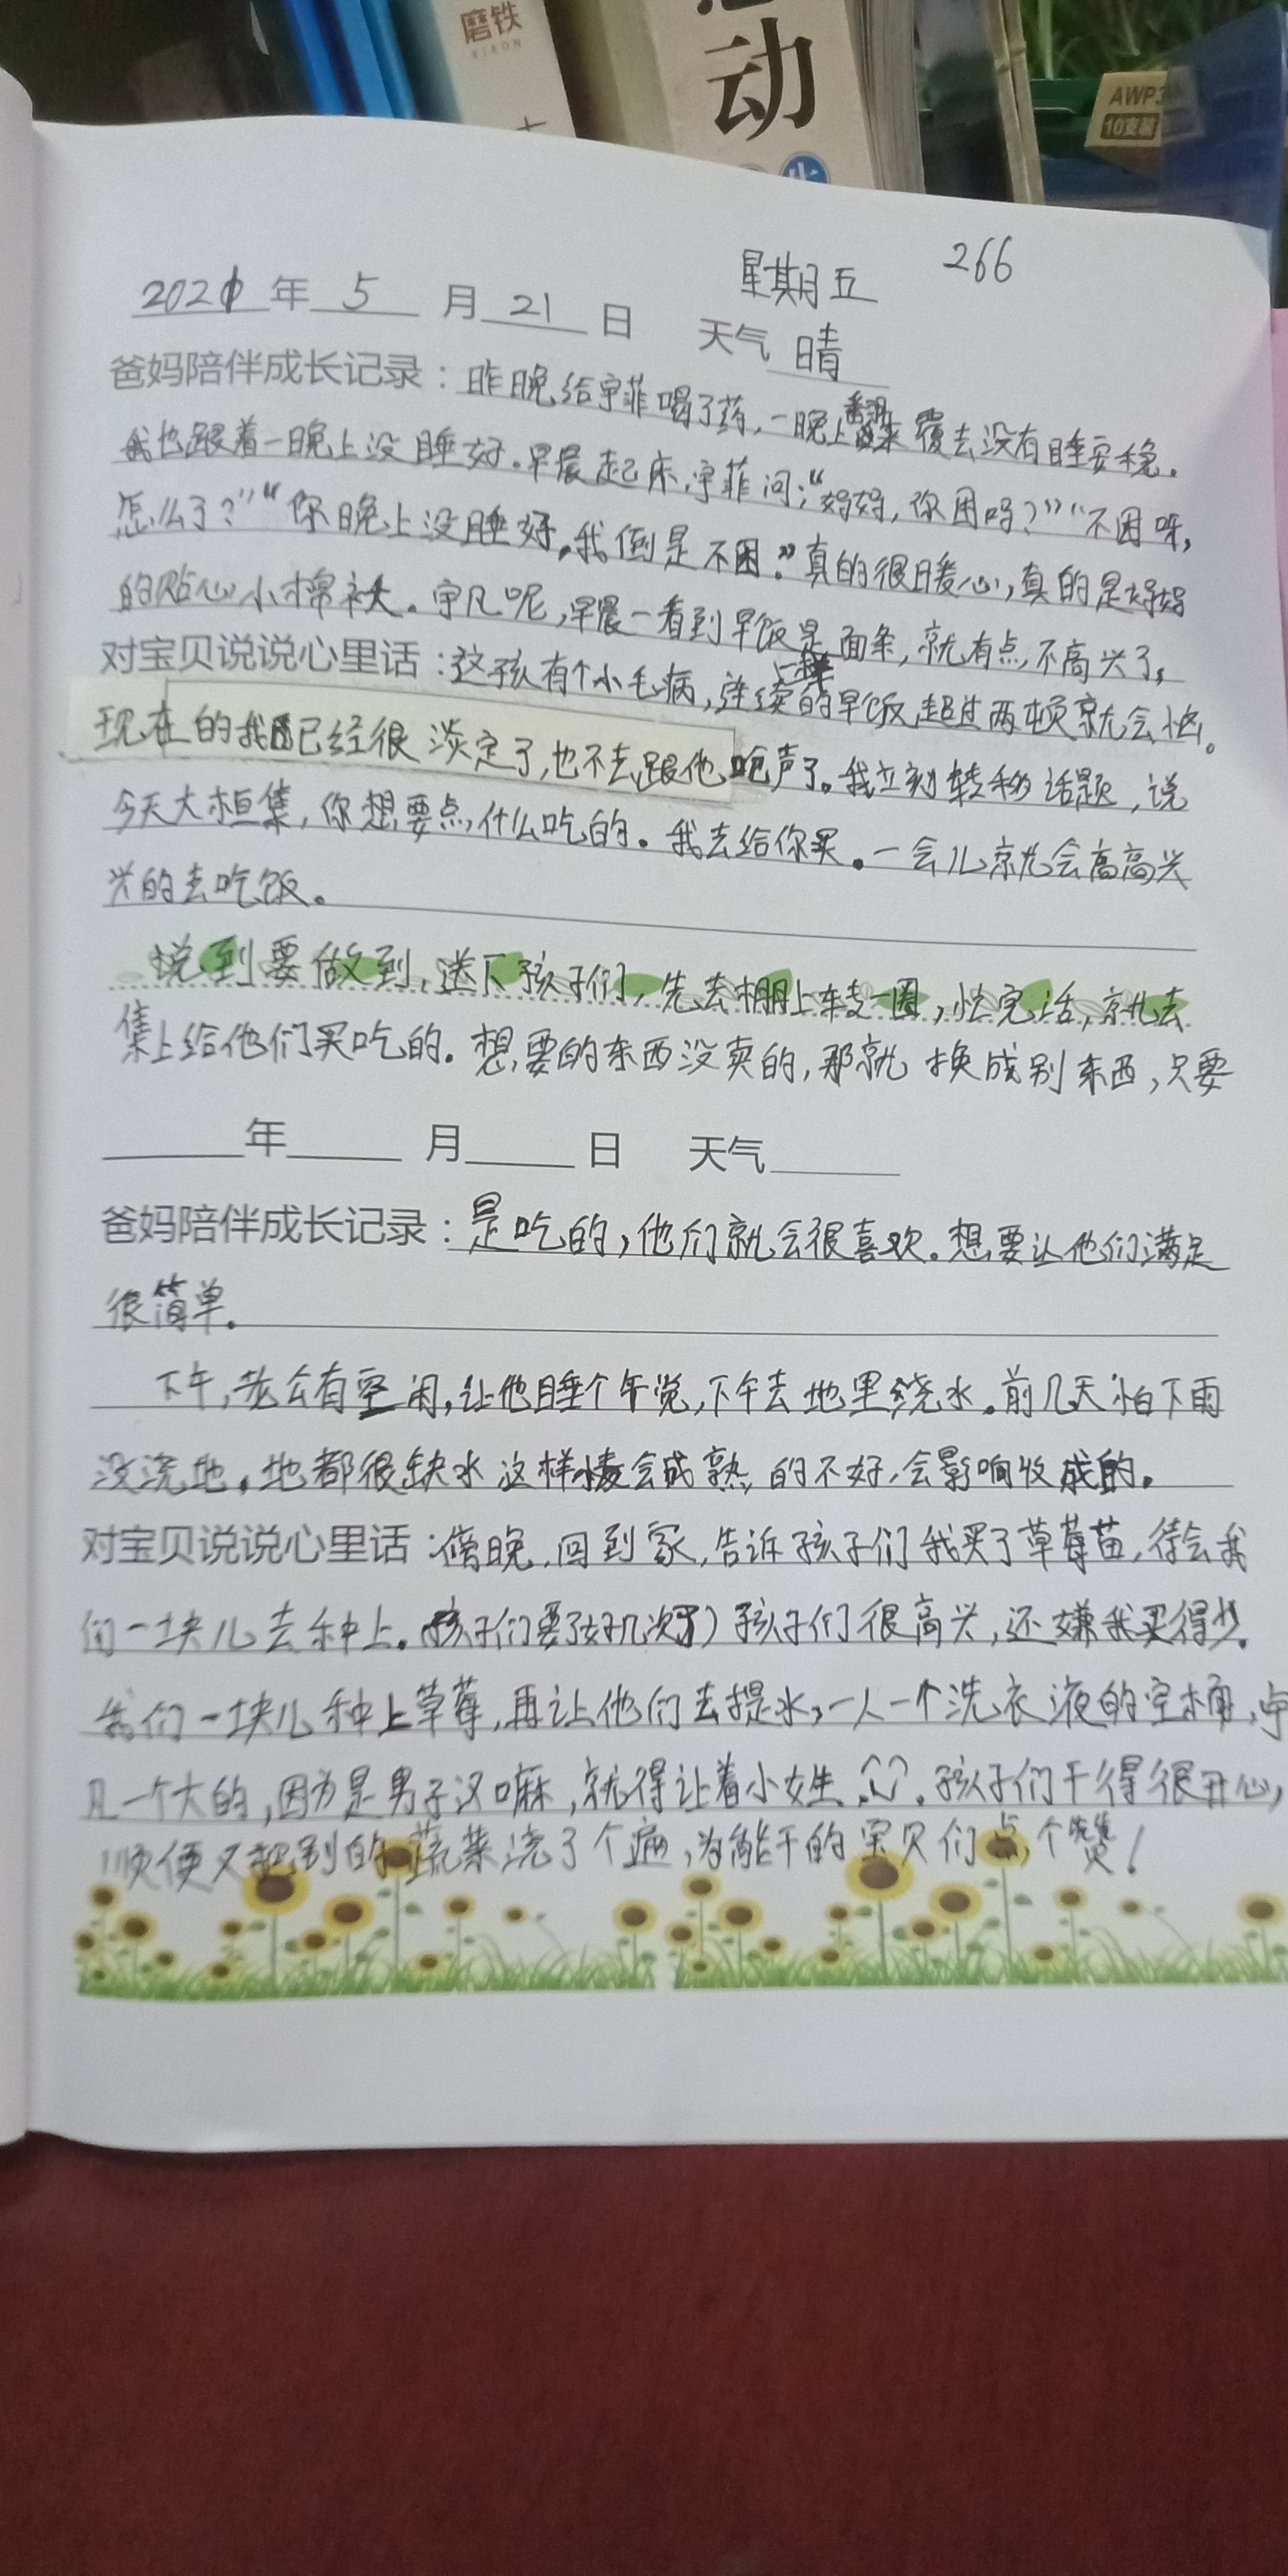 磨铁
XIRON
动
AWP3
10支装
266
星期五
2021年 5 月 21 日 天气 晴
爸妈陪伴成长记录：昨晚给宇菲喝了药，一晚上翻来覆去没有睡安稳。
我也跟着一晚上没睡好。早晨起床，宇菲问：“妈妈，你困吗？”“不困呀，
怎么了？”“你晚上没睡好。我倒是不困。”真的很暖心，真的是妈妈
的贴心小棉袄。宇凡呢，早晨一看到早饭是面条，就有点不高兴了，
对宝贝说说心里话：这孩有个小毛病，连续一样的早饭，超过两顿就会恼。
现在的我已经很淡定了，也不去跟他呛声了。我立刻转移话题，说
今天大桓集，你想要点什么吃的。我去给你买。一会儿就会高高兴
兴的去吃饭。
说到要做到，送下孩子们，先去棚上转一圈，忙完活，就去
集上给他们买吃的。想要的东西没卖的，那就换成别东西，只要
年 月 日 天气
爸妈陪伴成长记录：是吃的，他们就会很喜欢。想要让他们满足
很简单。
下午，老公有空闲，让他睡个午觉，下午去地里浇水。前几天怕下雨
没浇地。地都很缺水 这样麦会成熟的不好，会影响收成的。
对宝贝说说心里话：傍晚，回到家，告诉孩子们我买了草莓苗，待会我
们一块儿去种上。孩子们要了好几次了）孩子们很高兴，还嫌我买得少。
我们一块儿种上草莓，再让他们去提水，一人一个洗衣液的空桶，宇
凡一个大的，因为是男子汉嘛，就得让着小女生。孩子们干得很开心，
顺便又把别的蔬菜浇了个遍，为能干的宝贝们点个赞！